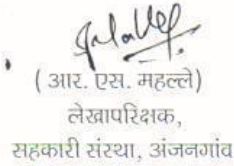 ( आर. एस. महल्ले)
लेखापरिक्षक,
सहकारी संस्था, अंजनगांव